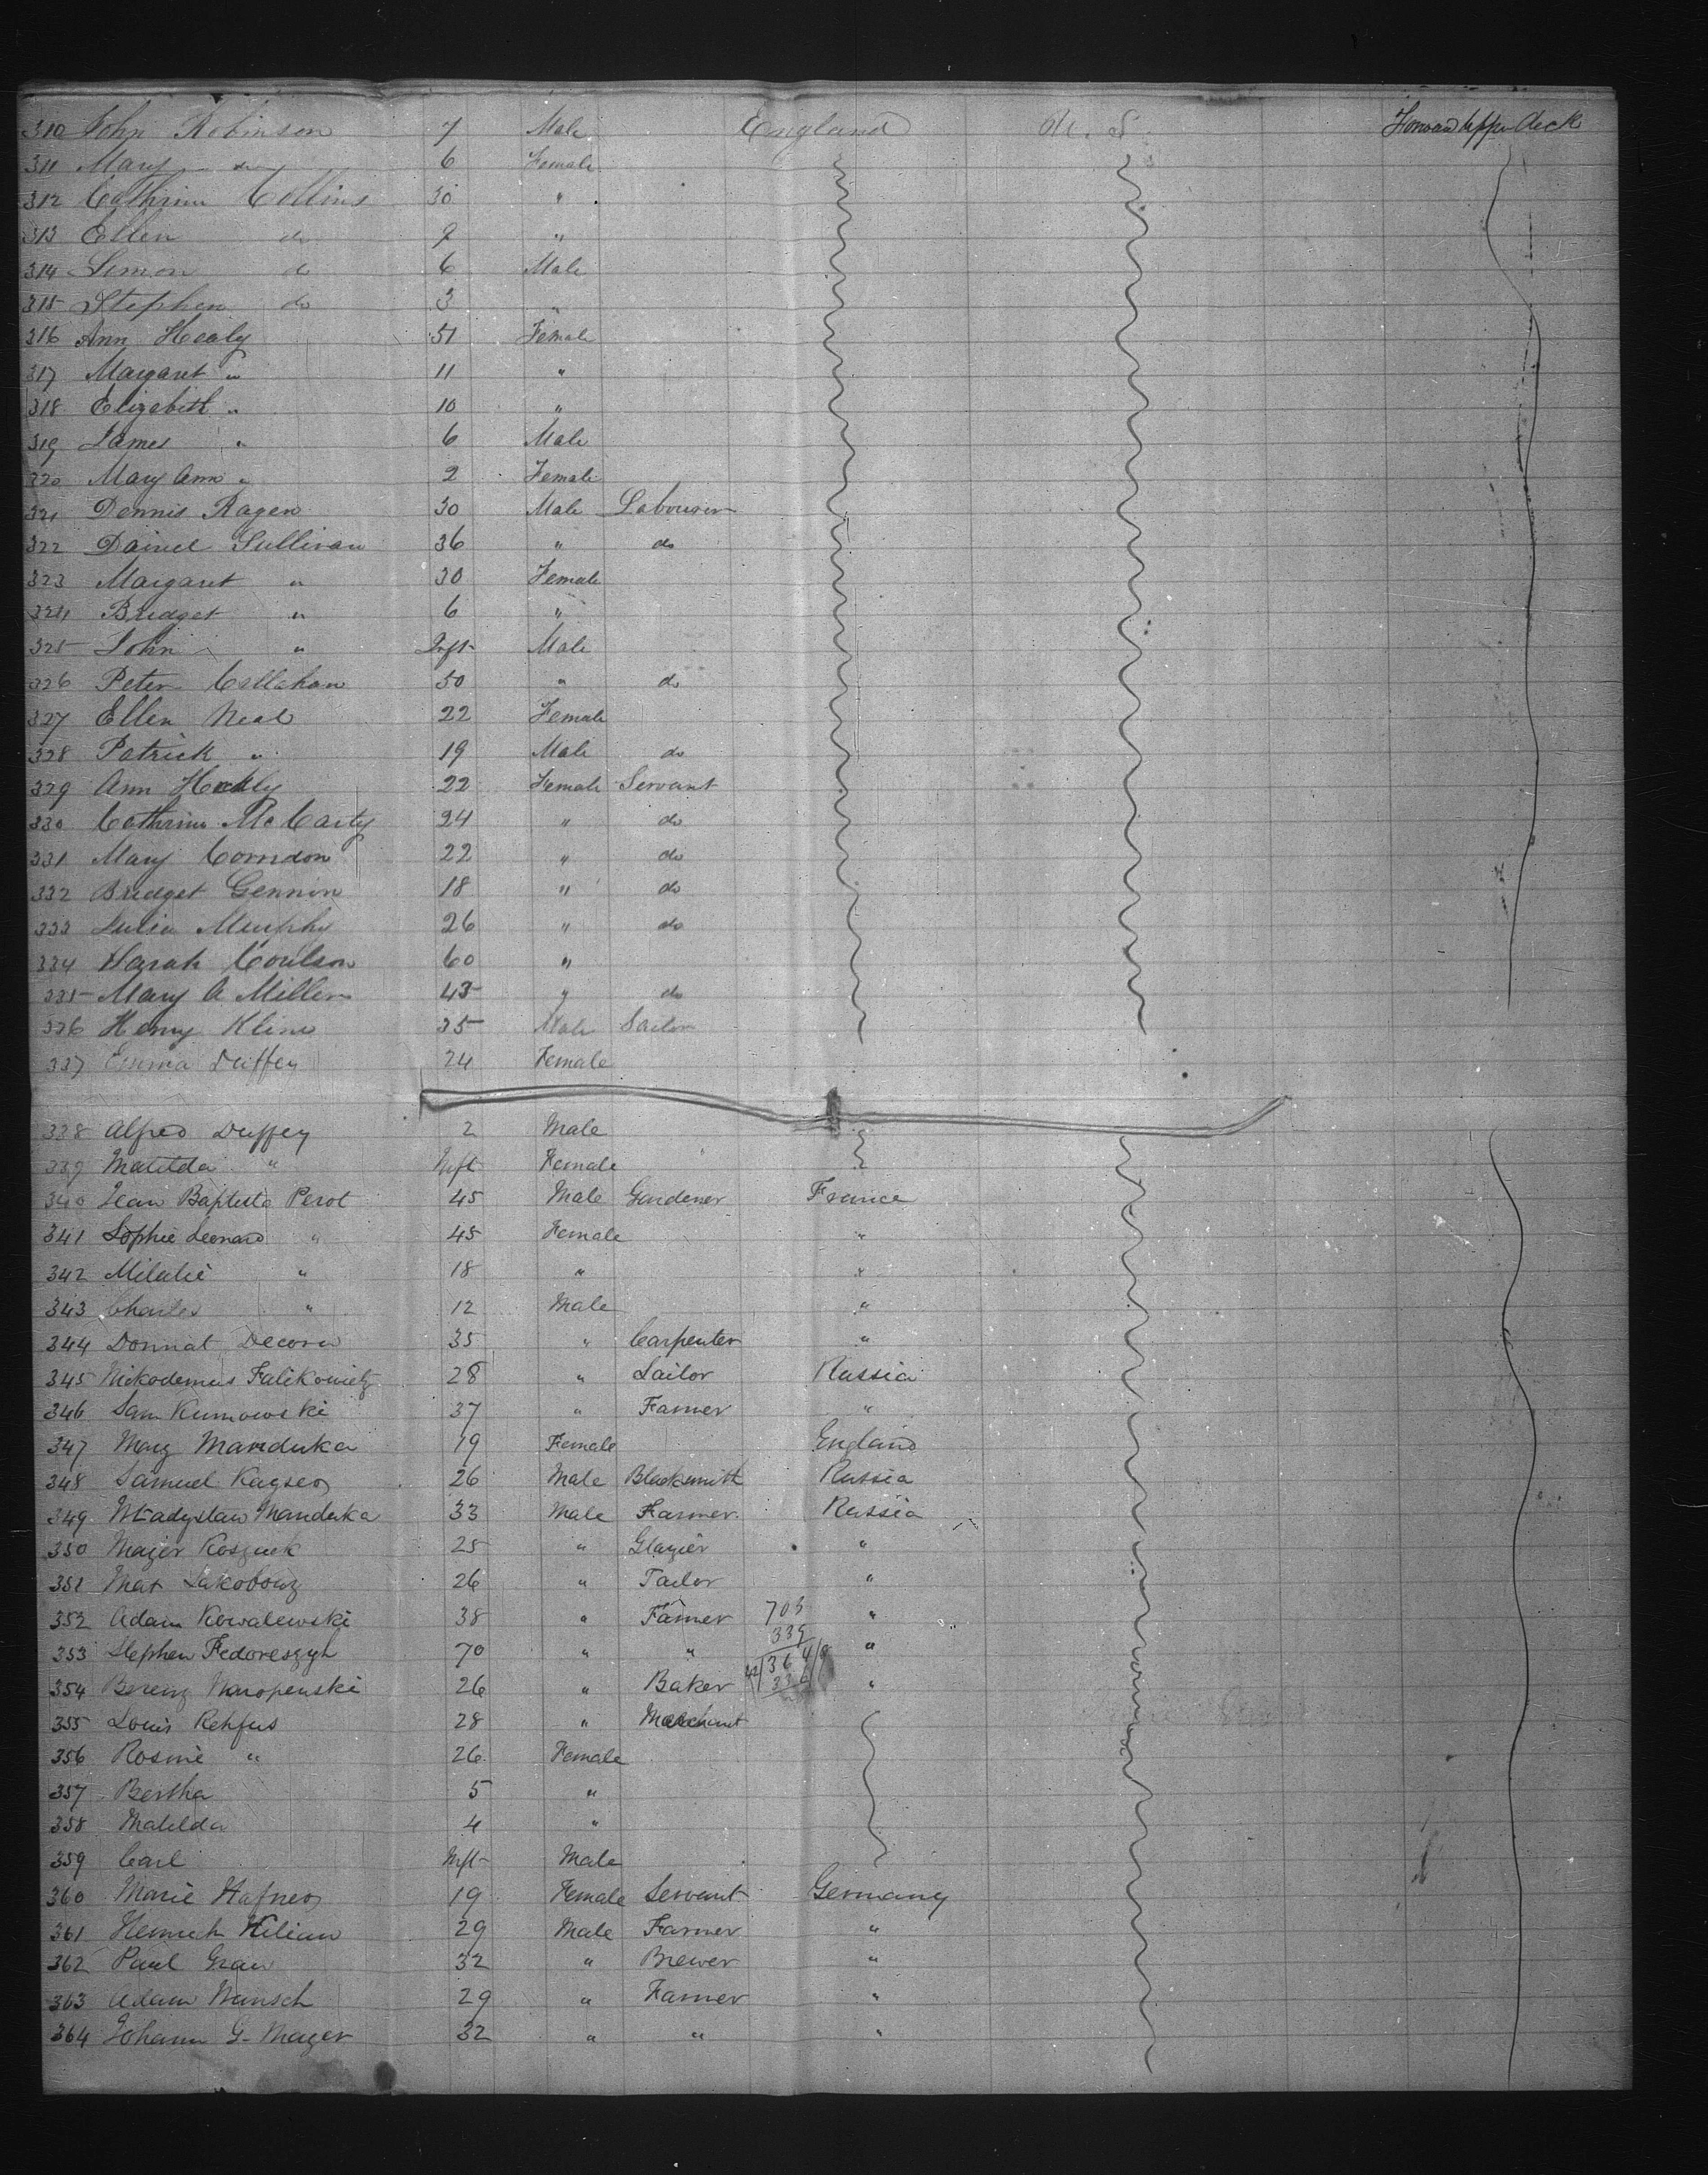 310 John Robinson 7 Male England U. S. Forward Upper deck
311 Mary do 6 Female
312 Cathrine Collins 30 "
313 Ellen do 9 "
314 Simon do 6 Male
315 Stephen do 3 "
316 Ann Healy 51 Female
317 Margaret " 11 "
318 Elizabeth " 10 "
319 James " 6 Male
320 Mary Ann " 2 Female
321 Dennis Ragen 30 Male Labourer
322 Dainel Sullivan 36 " do
323 Margaret " 30 Female
324 Bridget " 6 "
325 John " Inft Male
326 Peter Callahan 50 " do
327 Ellen Neal 22 Female
328 Patrick " 19 Male do
329 Ann 22 Female Servant
330 Cathrine McCarty 24 " do
331 Mary Corndon 22 " do
332 Bridget Gennin 18 " do
333 Julia Murphy 26 " do
334 Sarah Coulson 60 "
335 Mary A Miller 43 " do
336 Henry Kline 35 Male Sailor
337 Emma Duffey 24 Female
338 Alfred Duffey 2 Male
339 Matilda " Inft Female
340 Jean Baptiste Perot 45 Male Gardener France
341 Sophie Leonard " 45 Female "
342 Milatie " 18 " "
343 Charles " 12 Male "
344 Donnat Decorn 35 " Carpenter "
345 Nikodemus Falikowietz 28 " Sailor Russia
346 Sam Kumowski 37 " Farmer "
347 Mary Manduka 19 Female England
348 Samuel Kayser 26 Male Blacksmith Russia
349 Wladyslaw Manduka 33 Male Farmer Russia
350 Majer Roszuck 25 " Glazier "
351 Mat Jakobowz 26 " Tailor "
352 Adam Kowalewski 38 " Farmer 703 "
353 Stephen Fedoreszyh 70 " " 339 "
354 Berenz 26 " Baker 42/364/8 336 "
355 Louis Rehfus 28 " Merchant
356 Rosine " 26 Female
357 Bertha 5 "
358 Matilda 4 "
359 Carl Inft Male
360 Marie Hafner 19 Female Servant Germany
361 Heinrich Kilian 29 Male Farmer "
362 Paul Grau 32 " Brewer "
363 Adam Wunsch 29 " Farmer "
364 Johann G. Mayer 32 " " "